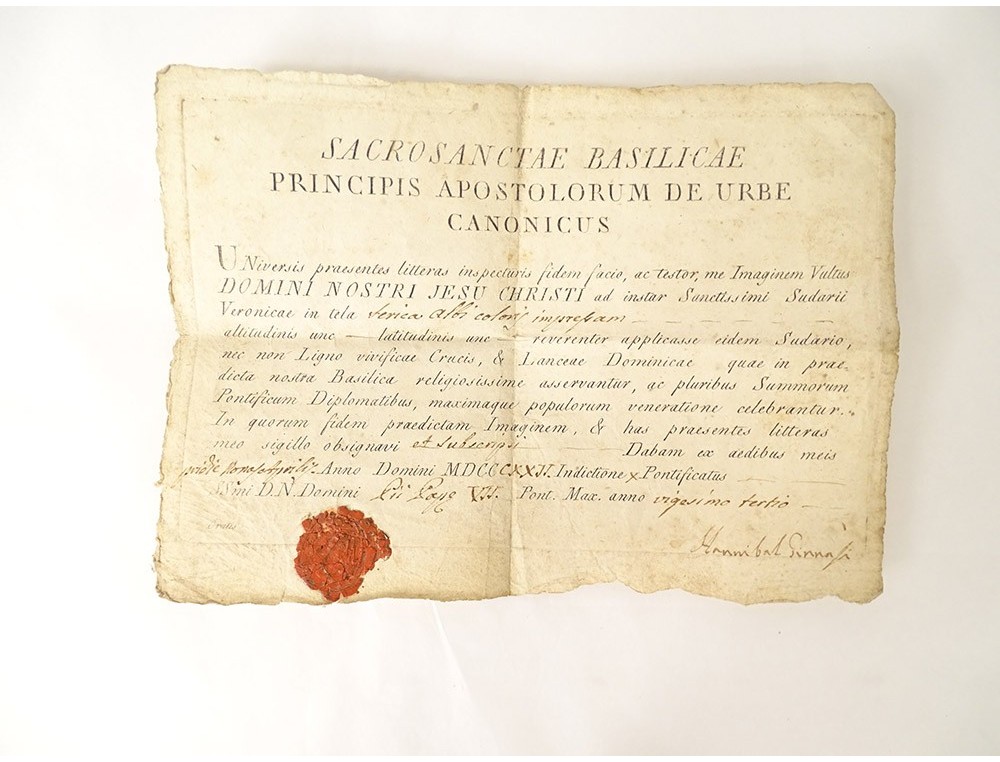 SACROSANCTAE BASILICAE
PRINCIPIS APOSTOLORUM DE URBE
CANONICUS
UNiversis praesentes litteras inspecturis fidem facio, ac testor, me Imaginem Vultus
DOMINI NOSTRI JESU CHRISTI ad instar Sanctissimi Sudarii
Veronicae in tela serica albi coloris impressam
altitudinis unc — latitudinis unc — reverenter applicasse eidem Sudario,
nec non Ligno vivificae Crucis, & Lanceae Dominicae quae in prae-
dicta nostra Basilica religiosissime asservantur, ac pluribus Summorum
Pontificum Diplomatibus, maximaque populorum veneratione celebrantur.
In quorum fidem praedictam Imaginem, & has praesentes litteras
meo sigillo obsignavi et subscripsi — Dabam ex aedibus meis
pridie Nonas Aprilis Anno Domini MDCCCXXII. Indictione X Pontificatus
SSmi D. N. Domini Pii Papae VII. Pont. Max. anno vigesimo tertio —
Gratis
Hannibal